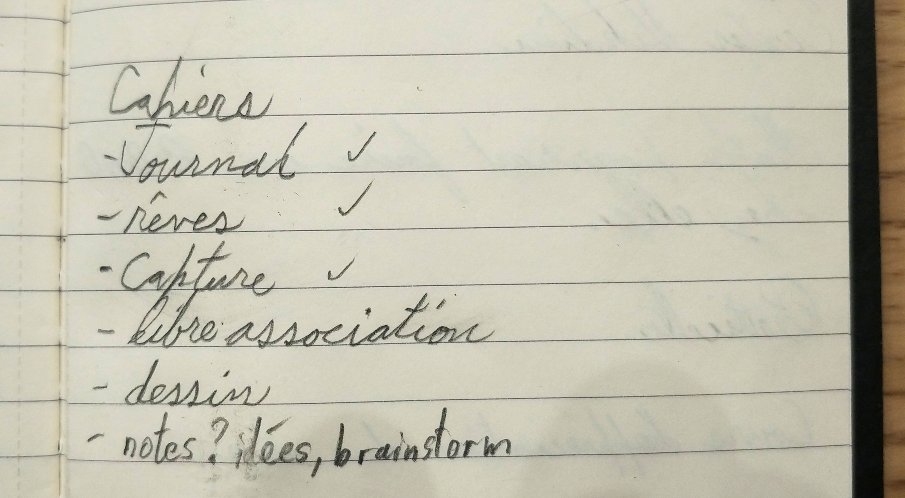 Cahiers
- Journal ✓
- rêves ✓
- Capture ✓
- libre association
- dessin
- notes? idées, brainstorm